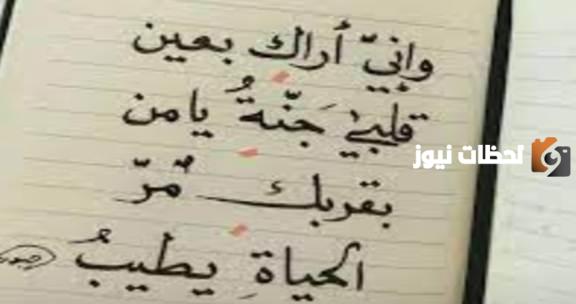 وإنيّ أراك بعين
قلبيْ جَنّةُ يا من
بقربك مُرّ
الحياةِ يطيبُ
لحظات نيوز